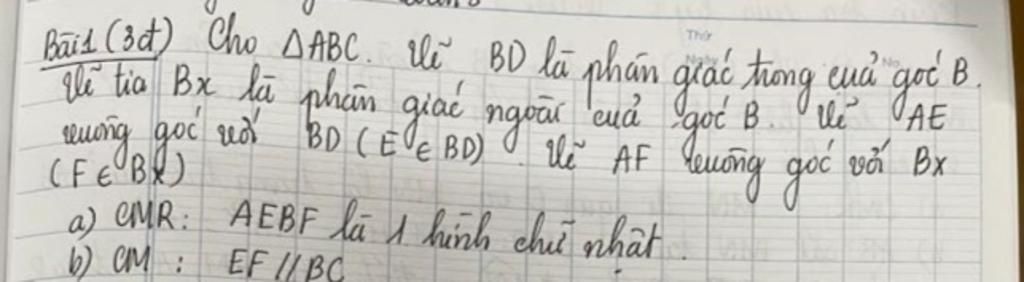 Bài 1 (3đ) Cho ΔABC. Vẽ BD là phân giác trong của góc B.
Vẽ tia Bx là phân giác ngoài của góc B Vẽ AE
vuông góc với BD (E ∈ BD). Vẽ AF vuông góc với Bx
(F ∈ Bx)
a) CMR: AEBF là 1 hình chữ nhật.
b) CM : EF // BC